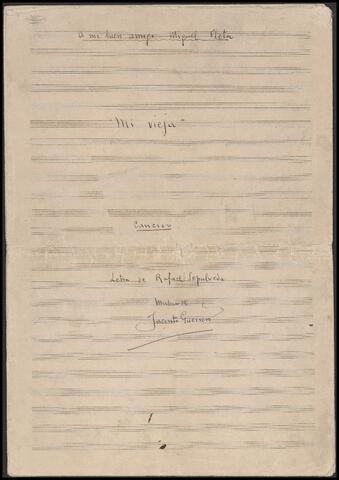 A mi buen amigo Miguel Fleta
"Mi vieja"
Canción
Letra de Rafael Sepulveda
Música de
Jacinto Guerrero